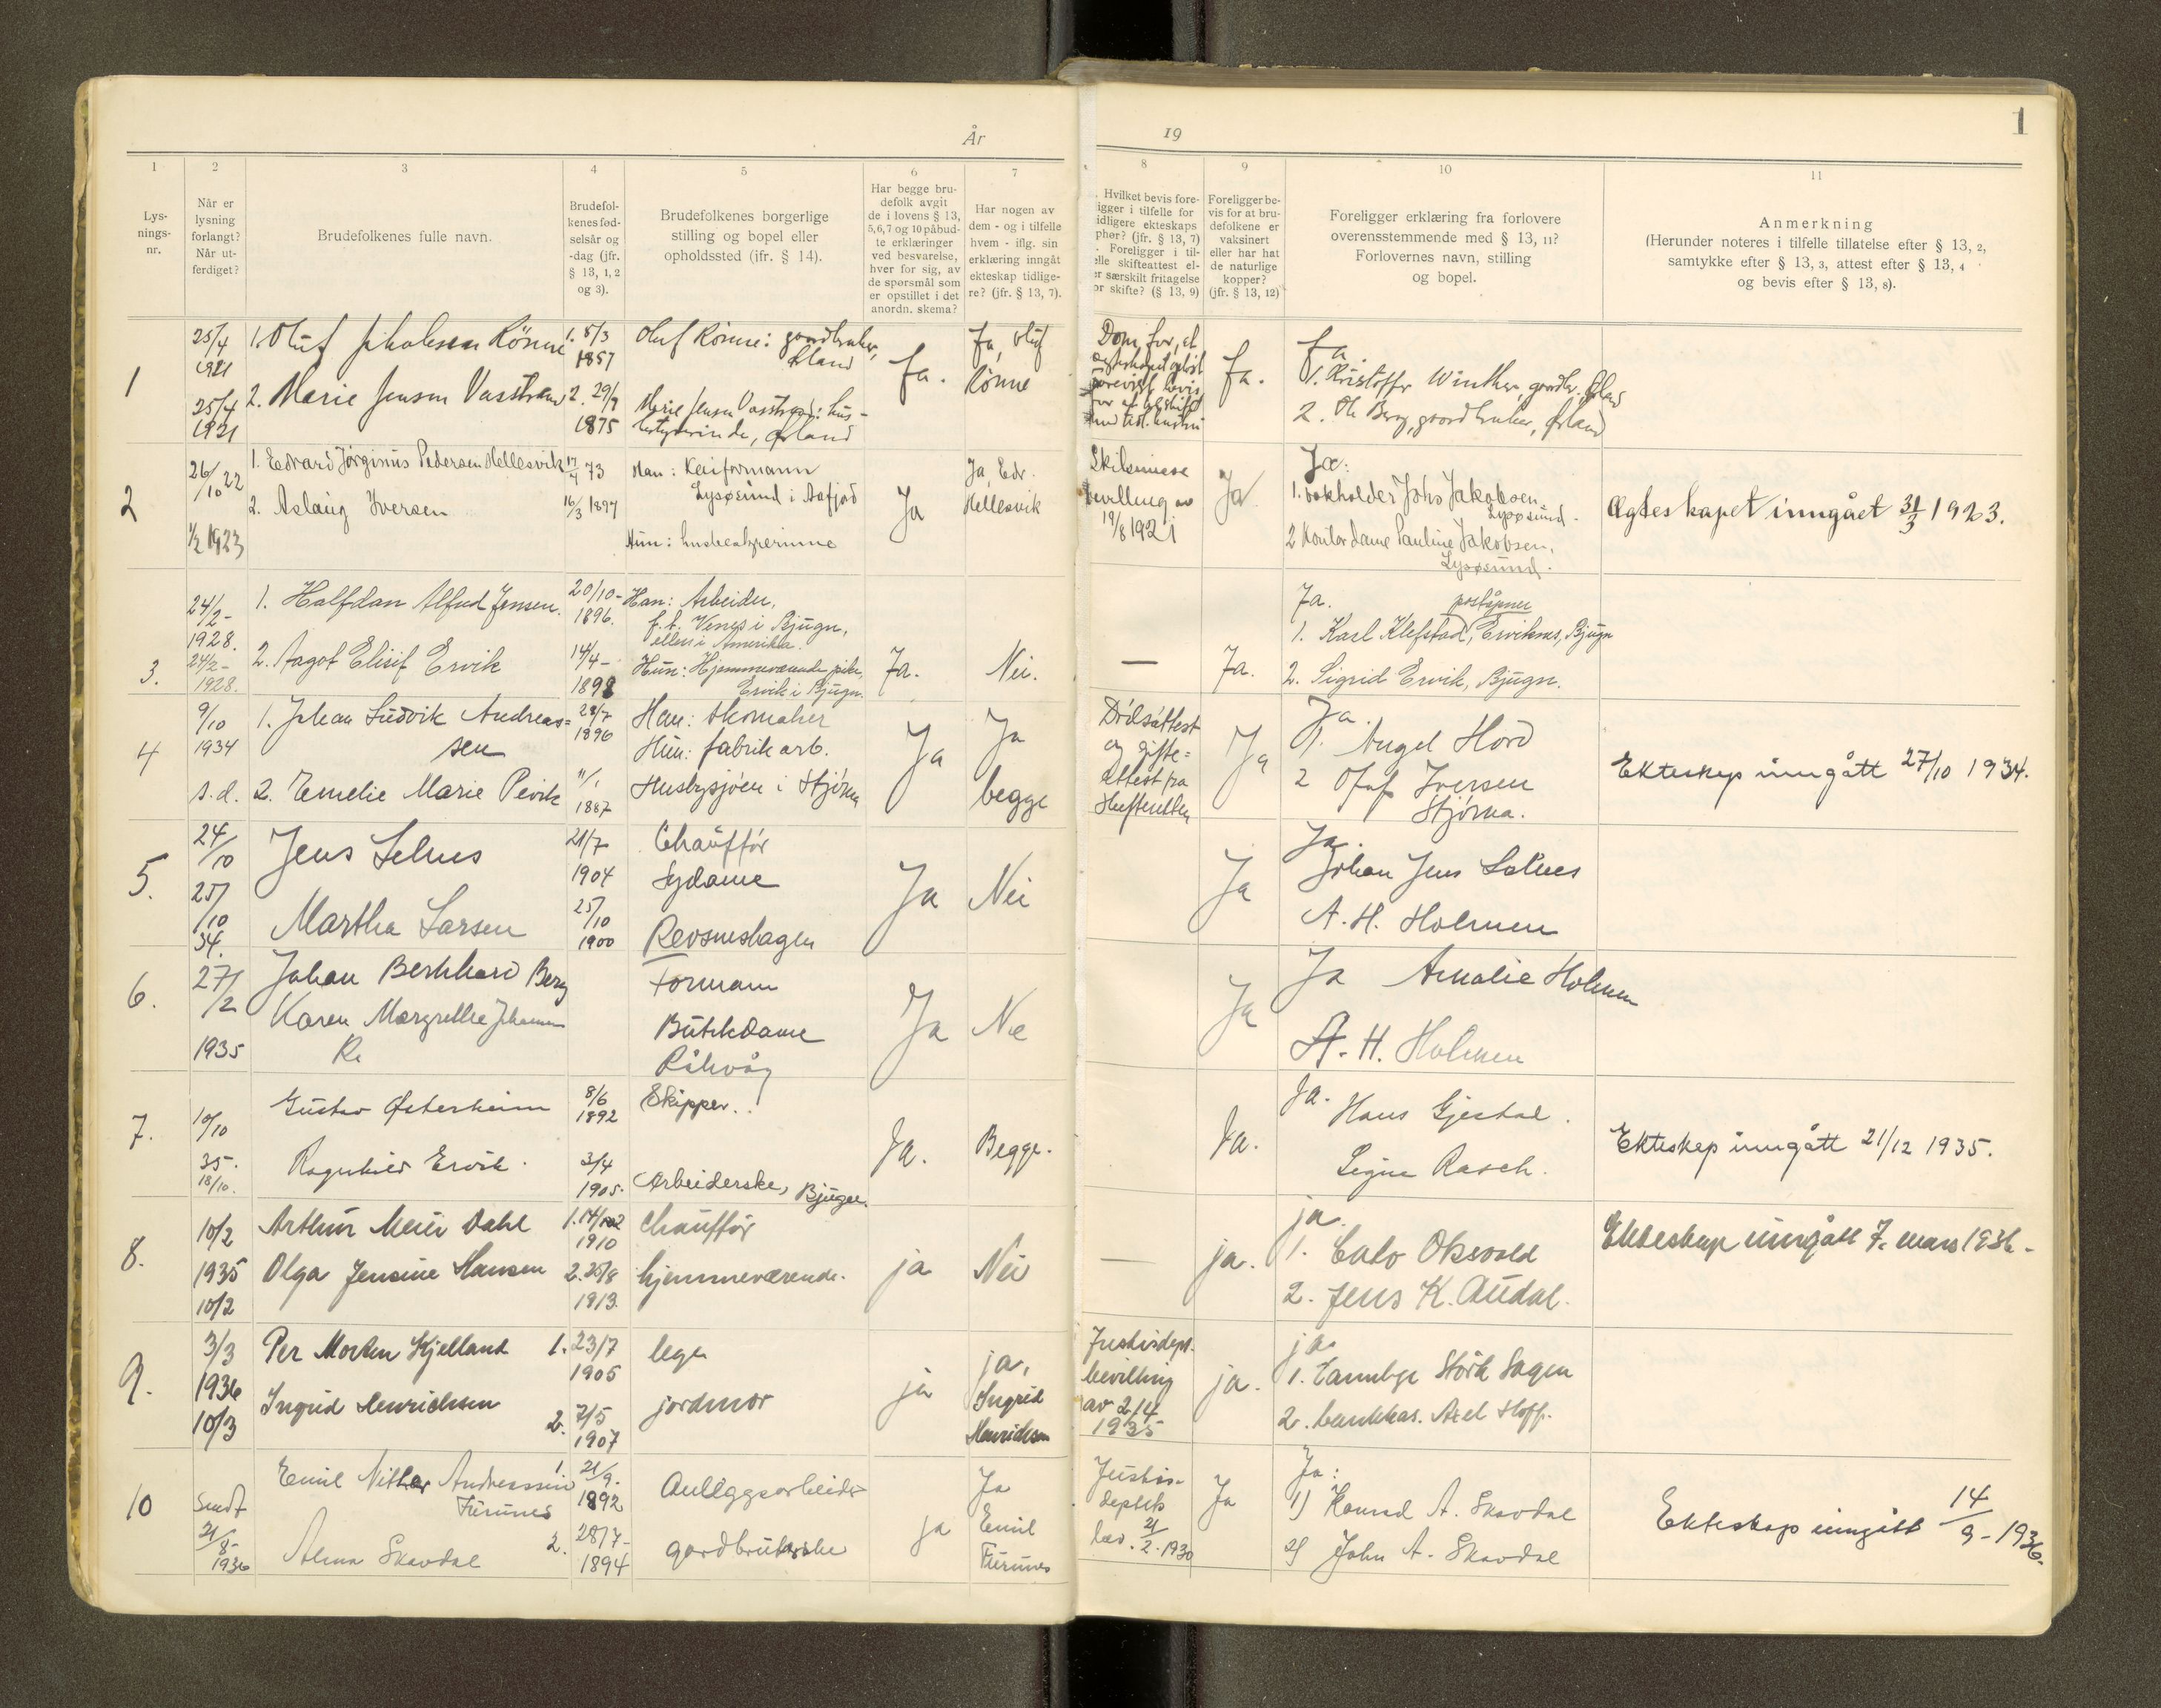 År
19
1
1
2
3
4
5
6
7
8
9
10
11
Lys-
nings-
nr.
Når er
lysning
forlangt?
Når ut-
ferdiget?
Brudefolkenes fulle navn.
Brudefol-
kenes fød-
selsår og
-dag (jfr.
§ 13, 1, 2
og 3).
Brudefolkenes borgerlige
stilling og bopel eller
opholdssted (jfr. § 14).
Har begge bru-
defolk avgit
de i lovens § 13,
5,6,7 og 10 påbud-
te erklæringer
ved besvarelse,
hver for sig, av
de spørsmål som
er opstillet i det
anordn. skema?
Har nogen av
dem - og i tilfelle
hvem - iflg. sin
erklæring inngåt
ekteskap tidlige-
re? (jfr. § 13, 7).
Hvilket bevis fore-
igger i tilfelle for
idligere ekteskaps
phør? (jfr. § 13, 7)
Foreligger i til-
elle skifteattest el-
er særskilt fritagelse
or skifte? (§ 13, 9)
Foreligger be-
vis for at bru-
defolkene er
vaksinert
eller har hat
de naturlige
kopper?
(jfr. § 13, 12)
Foreligger erklæring fra forlovere
overensstemmende med § 13, 11?
Forlovernes navn, stilling
og bopel.
Anmerkning
(Herunder noteres i tilfelle tillatelse efter § 13, 2,
samtykke efter § 13, 3, attest efter § 13, 4
og bevis efter § 13, 8).
1
25/4
1921
25/4
1921
1. Oluf Rönne
2. Marie Jensen
1. 5/3
1857
2. 29/9
1875
Oluf Rönne: gaardbruker,
Ørland
Marie Jensen
Ørland
Ja.
Ja, Oluf
Rönne
Dom for, at
Ja.
Ja
1. Kristoffer Winther, gaardbr. Ørland
2. Ole Berg, gaardbruker, Ørland
2
26/10 22
1/2 1923
1. Edvard Jørginus Pedersen Hellesvik
2. Aslaug Iversen
17/4 73
16/3 1897
Han: Kaiformann
Lysøsund i Aafjord
Hun: husbestyrerinne
Ja
Ja, Edv.
Hellesvik
Skilsmisse
bevilling av
19/8 1921
Ja
Ja:
1. Bokholder Johs Jakobsen,
Lysøsund.
2 Kontordame Pauline Jakobsen,
Lysøsund.
Ægteskapet inngået 31/3 1923.
3.
24/2-
1928.
24/2-
1928.
1. Halfdan Alfred Jensen.
2. Aagot Elisif Ervik
20/10-
1896.
14/4-
1898
Han: Arbeider,
f. t. Venes i Bjugn,
ellers i Amerika.
Hun: Hjemmeværende pike,
Ervik i Bjugn.
Ja.
Nei.
—
Ja.
Ja.
poståpner
1. Karl Klefstad, Erviknes, Bjugn
2. Sigrid Ervik, Bjugn.
4
9/10
1934
s.d.
1. Johan Ludvik Andreas=
sen
2. Emelie Marie Pevik
28/7
1896
11/1
1887
Han: skomaker
Hun: fabrikarb.
Husbysjøen i Stjørna
Ja
Ja
begge
Dødsattest
og gifte=
attest fra
Ja
Ja.
1. Angel Hörd
2 Olaf Iversen
Stjørna.
Ekteskap inngått 27/10 1934.
5.
24/10
25/10
34.
Jens Selnes
Martha Larsen
21/7
1904
25/10
1900
Chauffør
Sydame
Revsneshagen
Ja
Nei
Ja
Ja.
Johan Jens Selnes
A. H. Holmen
6.
27/2
1935
Johan Bernhard Berg
Karen Margrethe Johansen
Formann
Butikdame
Råkvåg
Ja
Ne
Ja
Ja Amalie Holmen
A. H. Holmen
7.
10/10
35.
18/10.
Gustav Østerheim
Ragnhild Ervik.
8/6
1892
3/4
1905.
Skipper.
Arbeiderske, Bjugn.
Ja.
Begge.
Ja.
Ja.
Hans Gjestal.
Signe Rasch.
Ekteskap inngått 21/12 1935.
8.
10/2
1935
10/2
Arthur Meier Dahl
Olga Jensine Hansen
1. 14/12
1910
2. 25/8
1913.
Chauffør
hjemmeværende.
ja
Nei
—
ja.
ja.
1. Cato Oksvold
2. Jens K. Audal.
Ekteskap inngått 7. mars 1936-
9.
3/3
1936
10/3
Per Morten Kjelland
Ingrid Henrichsen
1. 23/7
1905
2. 2/5
1907
lege
jordmor
ja
ja,
Ingrid
Henrichsen
Justisdept.
bevilling
av 2/4
1935
ja.
ja
1. Störk Sagen
2. bankkas. Axel Hoff.
10
Sendt
21/8-
1936
Emil Andreassen
Furunes
Alma Skavdal
1. 21/9.
1892
2. 28/7-
1894
Anleggsarbeider
gardbrukerske
ja
Ja
Emil
Furunes
Justis-
deptets
bev. 21/2.1930
Ja
Ja:
1) Konrad A. Skavdal
2) John A. Skavdal
Ekteskap inngått 14/9-1936.